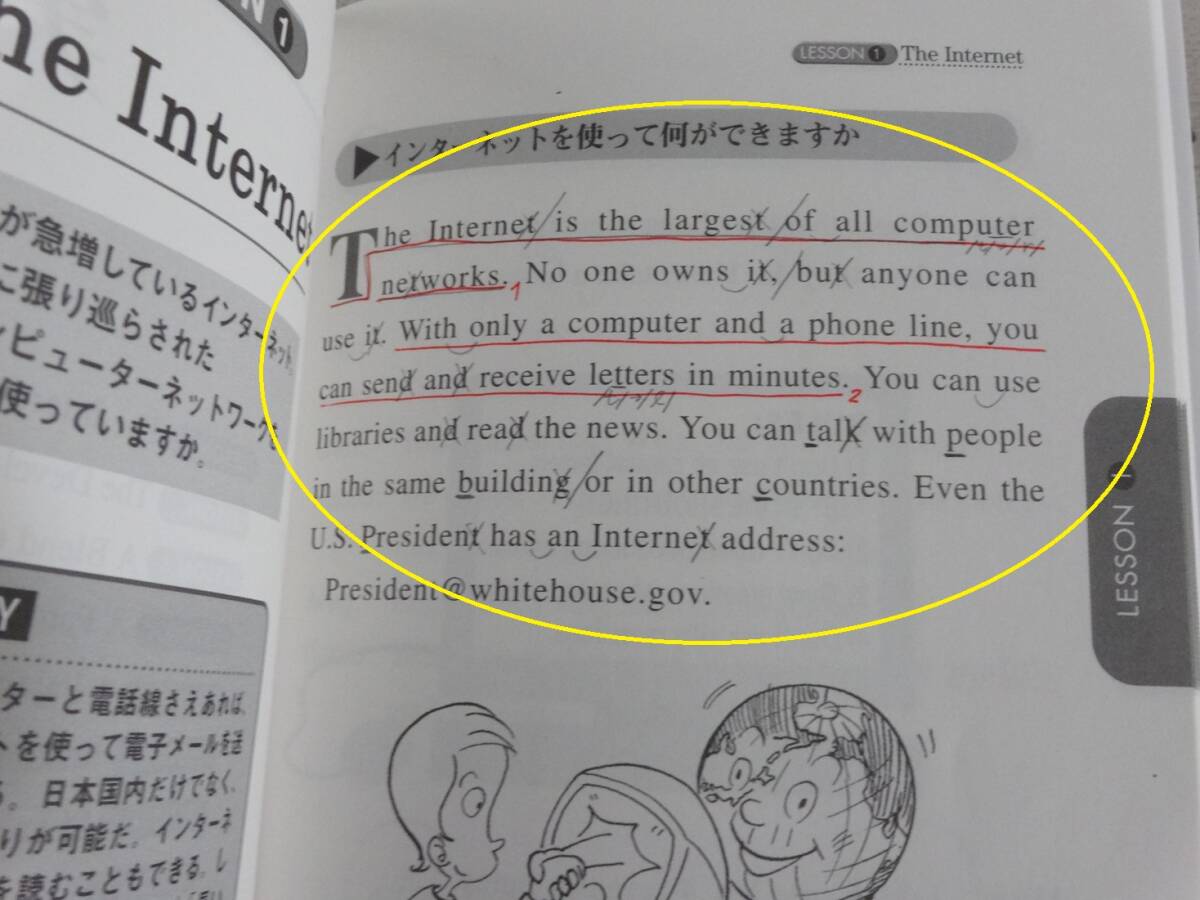 N 1
he Internet
が急増しているインターネット。
に張り巡らされた
ピューターネットワークを
使っていますか。
Y
ターと電話線さえあれば、
トを使って電子メールを送
る。日本国内だけでなく、
りが可能だ。インターネ
を読むこともできる。し
LESSON 1 The Internet
▶インターネットを使って何ができますか
The Internet is the largest of all computer
networks. 1 No one owns it, but anyone can
use it. With only a computer and a phone line, you
can send and receive letters in minutes. 2 You can use
libraries and read the news. You can talk with people
in the same building or in other countries. Even the
U.S. President has an Internet address:
President@whitehouse.gov.
LESSON 1